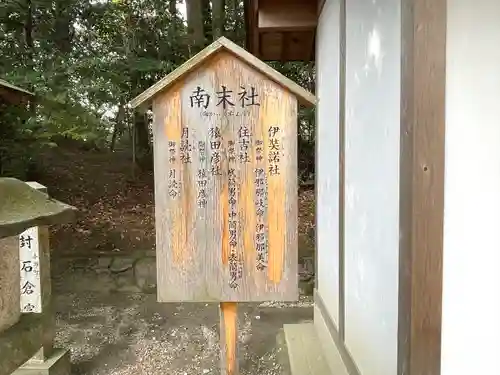 南末社
(向かって右より)
伊弉諾社
御祭神 伊邪那岐命・伊邪那美命
住吉社
御祭神 底筒男命・中筒男命・表筒男命
猿田彦社
御祭神 猿田彦神
月読社
御祭神 月読命
封石倉宮